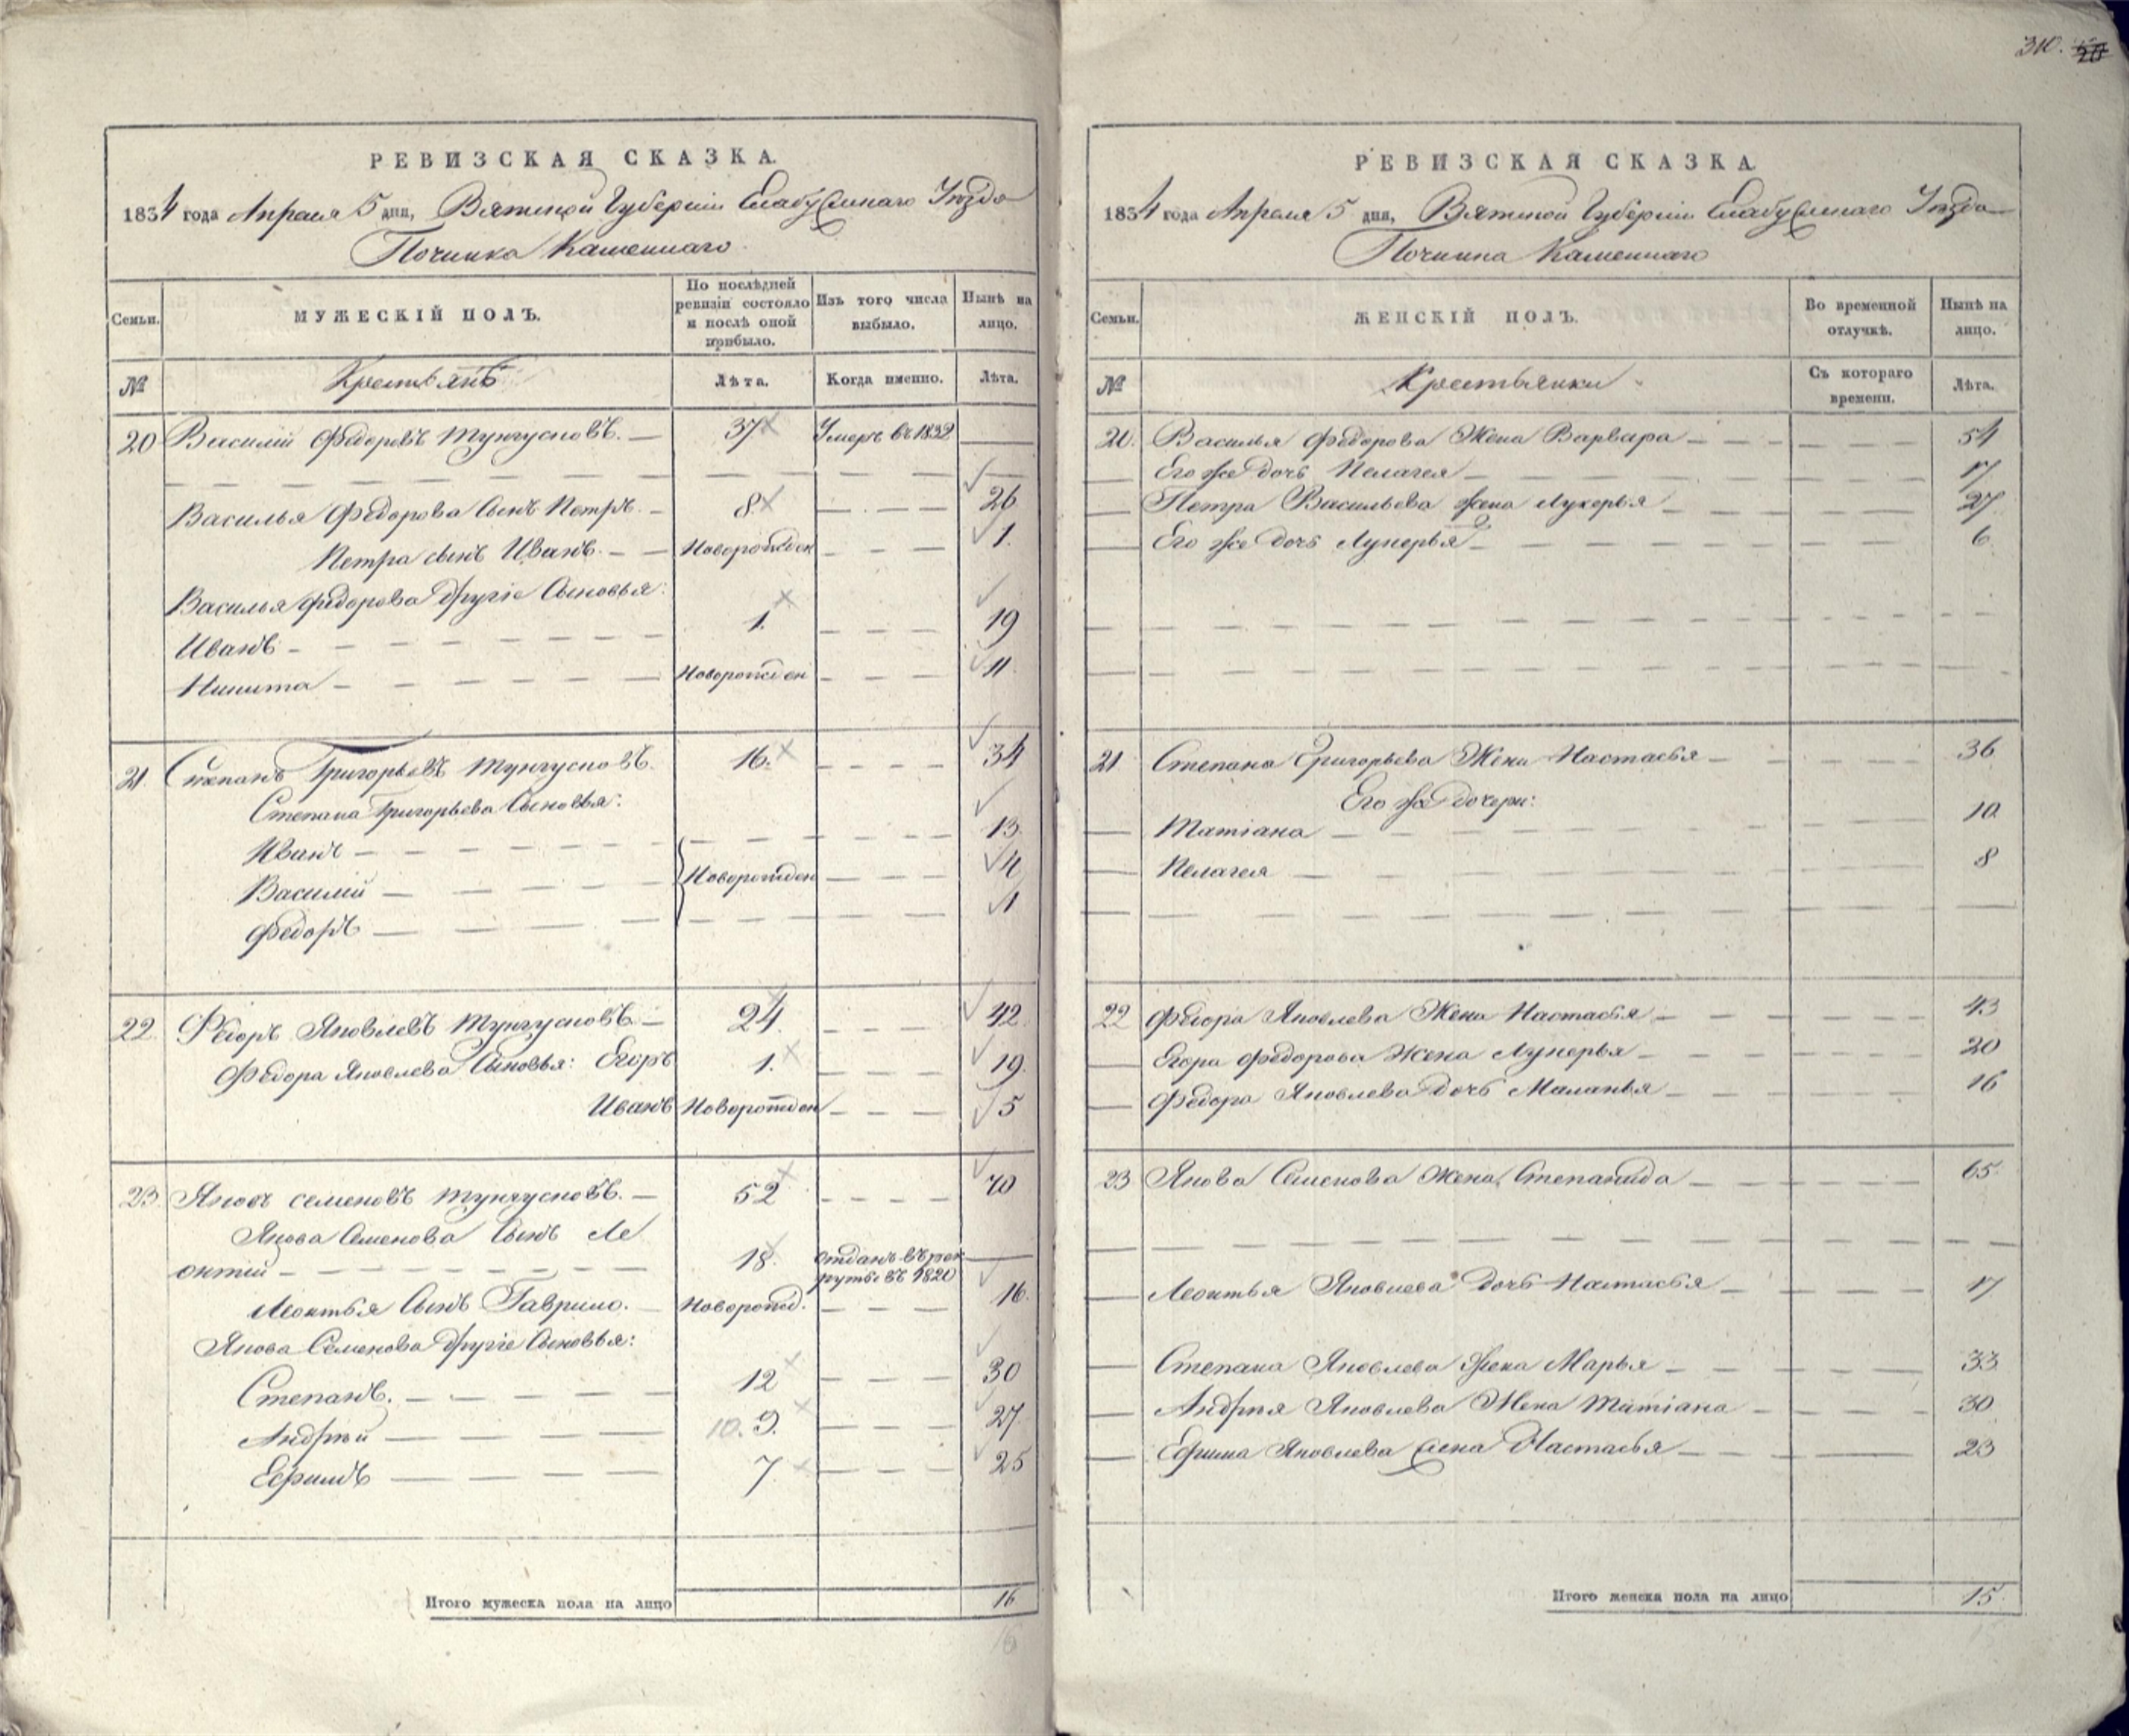 310. 20
РЕВИЗСКАЯ СКАЗКА.
1834 года Апреля 5 дня, Вятской Губернiи Елабужскаго Уѣзда
Починка Каменнаго
Семьи. МУЖЕСКIЙ ПОЛЪ. По послѣдней ревизiи состояло и послѣ оной прибыло. Изъ того числа выбыло. Нынѣ на лицо.
№ Крестьянъ Лѣта. Когда именно. Лѣта.
20 Василiй Федоровъ Тунгусковъ. 37 Умеръ въ 1832
Василья Федорова Сынъ Петръ 8 26
Петра сынъ Иванъ. Новорожден 1.
Василья Федорова другiе Сыновья:
Иванъ 1. 19
Никита Новорожден 11.
21. Степанъ Григорьевъ Тунгусковъ. 16. 34
Степана Григорьева Сыновья:
Иванъ 13.
Василiй Новорожден 4
Федоръ 1
22. Федоръ Яковлевъ Тунгусковъ 24. 42.
Федора Яковлева Сыновья: Егоръ 1. 19.
Иванъ Новорожден 5
23. Яковъ Семеновъ Тунгусковъ. 52 70
Якова Семенова Сынъ Ле
онтiй 18. отданъ въ рек
рутъ въ 1820
Леонтья Сынъ Гаврило. Новорожд. 16.
Якова Семенова другiе Сыновья:
Степанъ. 12 30
Андрѣй 10. 9. 27
Ефимъ 7. 25
Итого мужеска пола на лицо 16
РЕВИЗСКАЯ СКАЗКА
1834 года Апреля 5 дня, Вятской Губернiи Елабужскаго Уѣзда
Починка Каменнаго
Семьи. ЖЕНСКIЙ ПОЛЪ. Во временной отлучкѣ. Нынѣ на лицо.
№ Крестьянки Съ котораго времени. Лѣта.
20. Василья Федорова Жена Варвара 54
Его же дочь Пелагея 17
Петра Васильева жена Лукерья 27
Его же дочь Лукерья 6
21 Степана Григорьева Жена Настасья 36
Его же дочери:
Татiана 10.
Пелагея 8
22 Федора Яковлева Жена Настасья 43
Егора Федорова Жена Лукерья 20
Федора Яковлева дочь Маланья 16
23 Якова Семенова Жена Степанида 65.
Леонтья Яковлева дочь Настасья 17
Степана Яковлева жена Марья 33
Андрѣя Яковлева Жена Татiана 30
Ефима Яковлева жена Настасья 23
Итого женска пола на лицо 15.